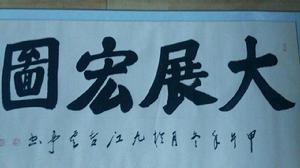 大展宏圖
甲午年冬月於九江